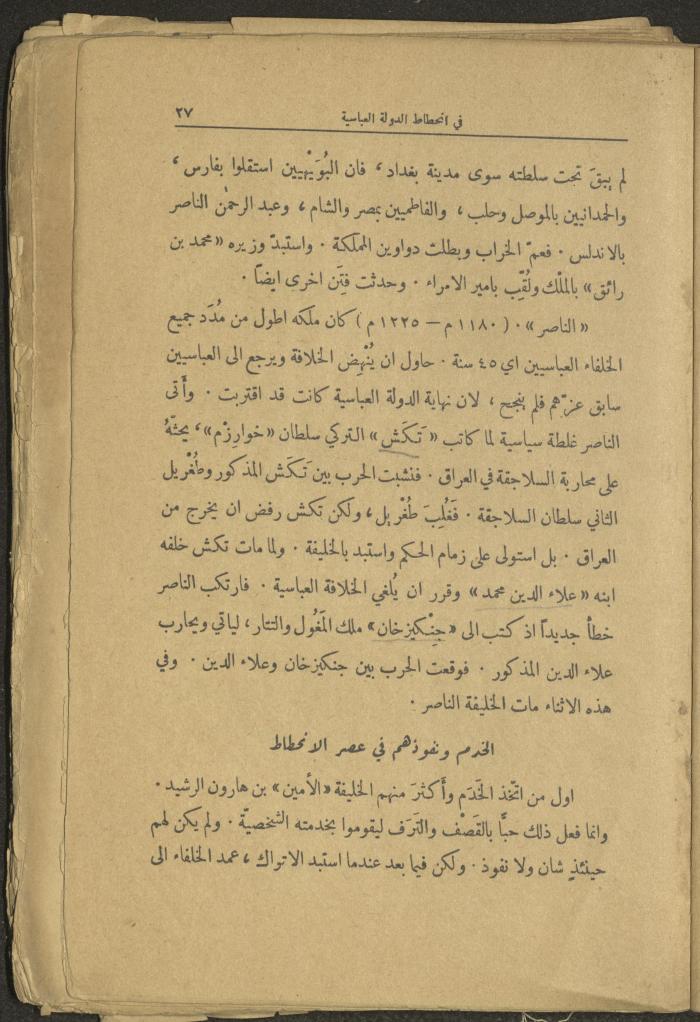 في انحطاط الدولة العباسية ٢٧
لم يبقَ تحت سلطته سوى مدينة بغداد، فان البُوَيْهيين استقلوا بفارس،
والحمدانيين بالموصل وحلب، والفاطميين بمصر والشام، وعبد الرحمٰن الناصر
بالاندلس · فعمّ الخراب وبطلت دواوين المملكة · واستبدّ وزيره «محمد بن
رائق» بالملْك ولُقِّب بامير الامراء · وحدثت فِتَن اخرى ايضاً ·
«الناصر» · (١١٨٠ م – ١٢٢٥ م) كان ملكه اطول من مُدَد جميع
الخلفاء العباسيين اي ٤٥ سنة · حاول ان يُنْهِض الخلافة ويرجع الى العباسيين
سابق عزّهم فلم ينجح، لان نهاية الدولة العباسية كانت قد اقتربت · وأَتى
الناصر غلطة سياسية لما كاتب «تَكَش» التركي سلطان «خوارِزْم»، يحثّهُ
على محاربة السلاجقة في العراق · فنشبت الحرب بين تَكَش المذكور وطُغْريل
الثاني سلطان السلاجقة · فَغُلِبَ طُغْريل، ولكن تكش رفض ان يخرج من
العراق · بل استولى على زمام الحكم واستبد بالخليفة · ولما مات تكش خلفه
ابنه «علاء الدين محمد» وقرر ان يُلغي الخلافة العباسية · فارتكب الناصر
خطأً جديداً اذ كتب الى «جِنْكيزخان» ملك المَغُول والتتار، لياتي ويحارب
علاء الدين المذكور · فوقعت الحرب بين جنكيزخان وعلاء الدين · وفي
هذه الاثناء مات الخليفة الناصر ·
الخدم ونفوذهم في عصر الانحطاط
اول من اتّخذ الخَدَم وأَكثرَ منهم الخليفة «الأمين» بن هارون الرشيد ·
وانما فعل ذلك حبًّا بالقَصْف والتَرَف ليقوموا بخدمته الشخصيّة · ولم يكن لهم
حينئذٍ شان ولا نفوذ · ولكن فيما بعد عندما استبد الاتواك، عمد الخلفاء الى